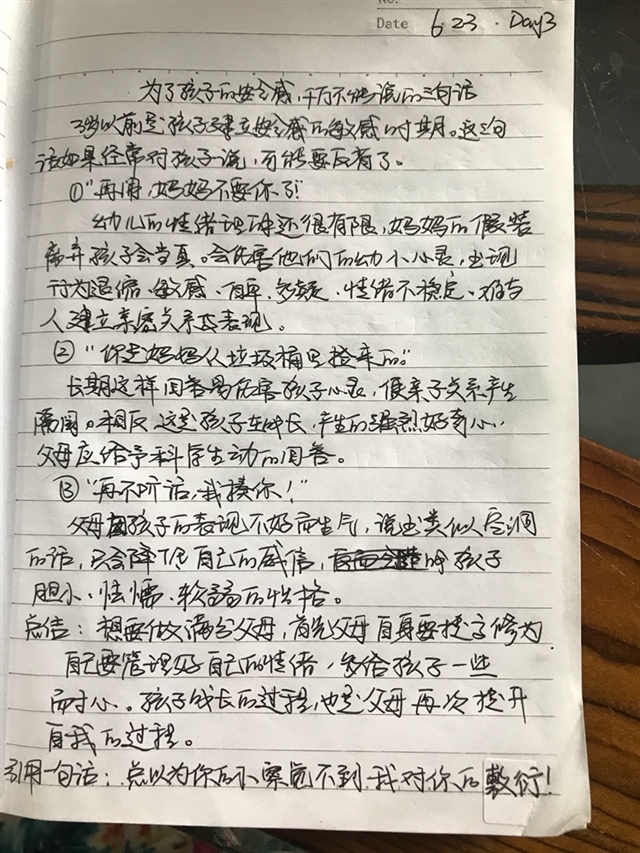 No.
Date 6.23. Day3
为了孩子的安全感,千万不能说的三句话
3岁以前是孩子建立安全感的敏感时期。这三句
话如果经常对孩子说,可能要反省了。
①"再闹,妈妈不要你了!"
幼儿的情绪理解还很有限,妈妈的假装
离弃孩子会当真。会伤害他们的幼小心灵,出现
行为退缩、敏感、自卑、多疑、情绪不稳定、难与
人建立亲密关系及表现。
②"你是妈妈从垃圾桶里捡来的。"
长期这样回答易伤害孩子心灵,使亲子关系产生
隔阂。相反,这是孩子在成长,产生的强烈好奇心,
父母应给予科学生动的回答。
③"再不听话,我揍你!"
父母因孩子的表现不好而生气,说出类似空洞
的话,只会降低自己的威信,孩子
胆小、怯懦、软弱的性格。
总结:想要做满分父母,首先父母自身要提高修为
自己要管理好自己的情绪,多给孩子一些
耐心。孩子成长的过程,也是父母再次提升
自我的过程。
引用一句话:总以为你的小察觉不到我对你的敷衍!